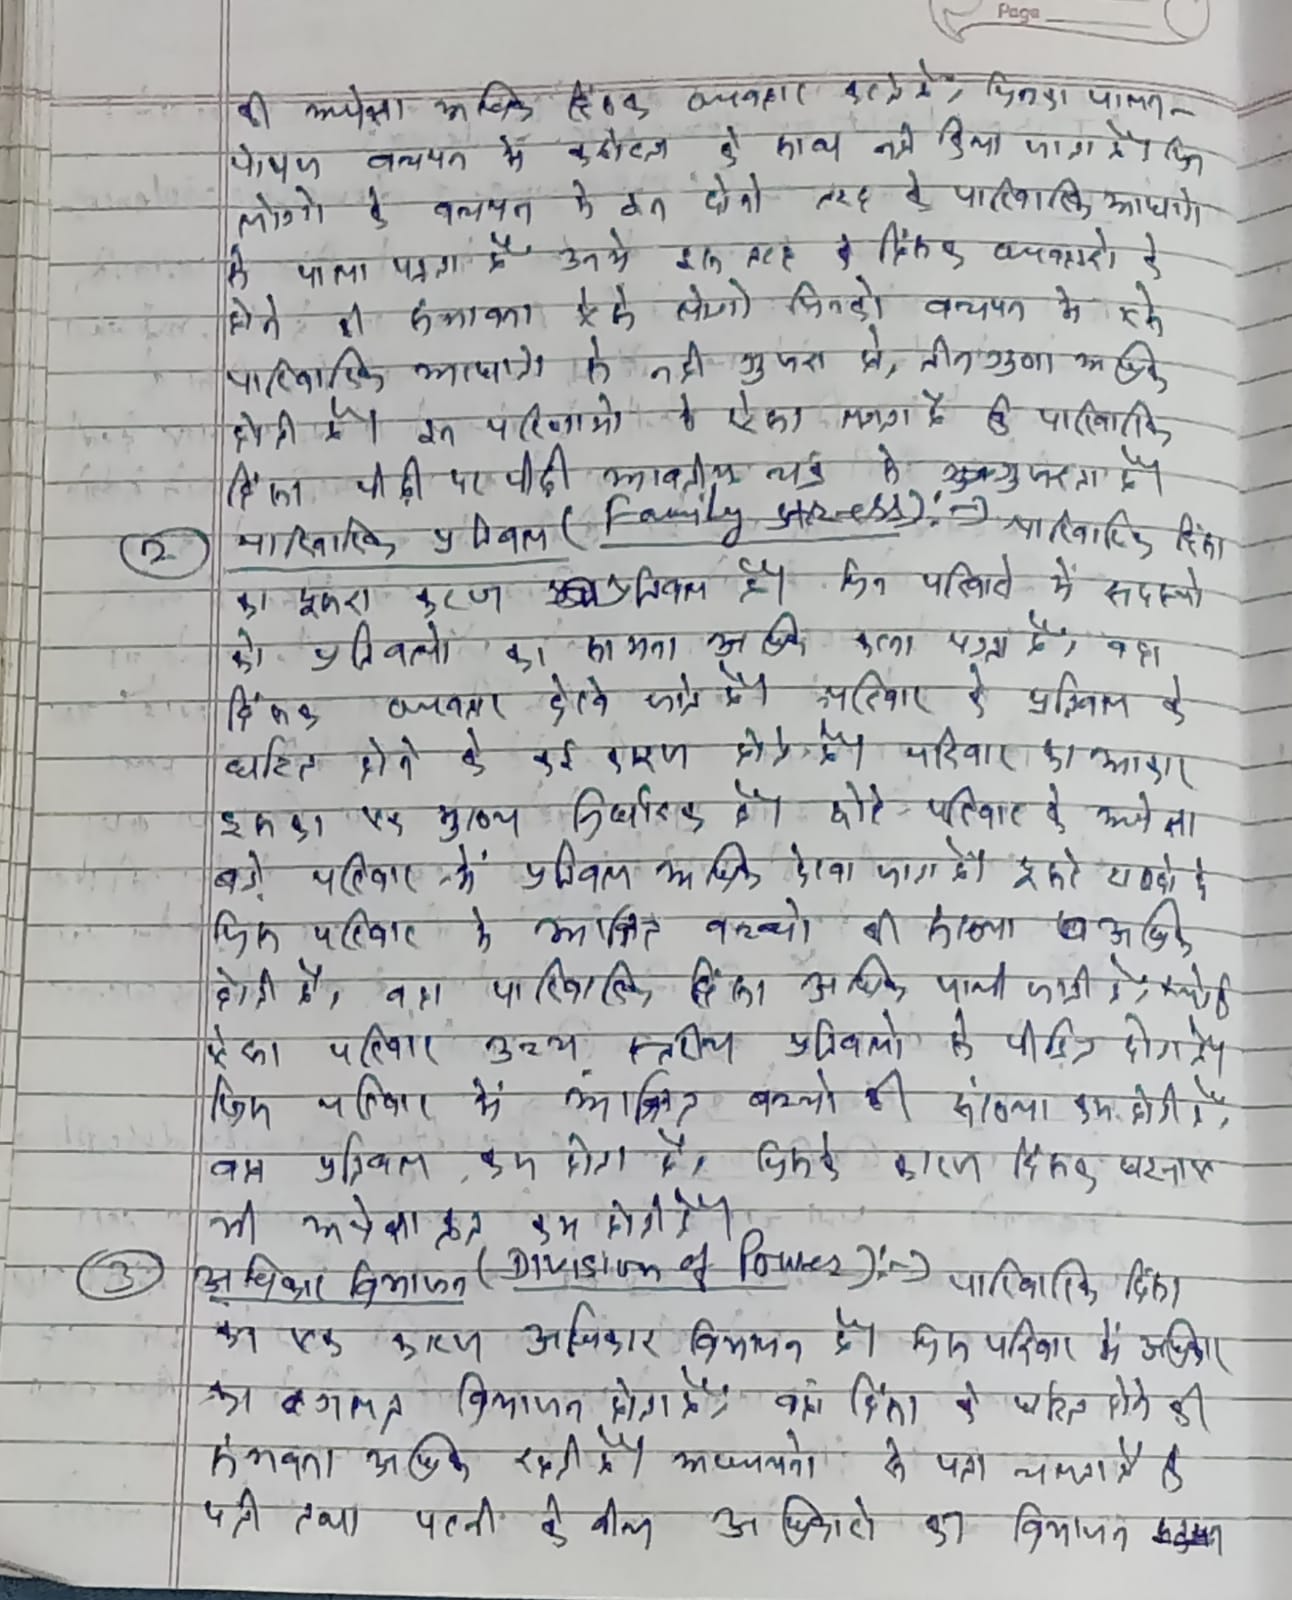 Page
की अपेक्षा अधिक हिंसक व्यवहार करते है, जिनका पालन-
पोषण बचपन में कठोरता के साथ नही किया जाता है। जिन
लोगो के बचपन मे इन दोनो तरह के पारिवारिक आघातो
से पाला पड़ता है उनमे इस तरह के हिंसक व्यवहारो के
होने की संभावना ऐसे लोगो जिनको बचपन मे ऐसे
पारिवारिक आघातो से नही गुजरा हो, तीन गुणा अधिक
होती है। इन परिणामो से ऐसा लगता है कि पारिवारिक
हिंसा पीढ़ी दर पीढ़ी चक्र से गुजरता है।
(2) पारिवारिक प्रतिबल (Family stress):-> पारिवारिक हिंसा
का दूसरा कारण प्रतिबल है। जिन परिवारो में सदस्यो
को प्रतिबलो का सामना अधिक करना पड़ता है, वहा
हिंसक व्यवहार देखे जाते है। परिवार के प्रतिबल के
घटित होने के कई कारण होते है। परिवार का आकार
इसका एक मुख्य निर्धारक है। छोटे परिवार के अपेक्षा
बड़े परिवार में प्रतिबल अधिक देखा जाता है। दूसरे शब्दो मे
जिस परिवार मे आश्रित बच्चो की संख्या अधिक
होती है, वहा पारिवारिक हिंसा अधिक पायी जाती है, क्योकि
ऐसा परिवार उच्च स्तरीय प्रतिबलो से पीड़ित होता है।
जिस परिवार में आश्रित बच्चो की संख्या कम होती है,
वहा प्रतिबल कम होता है, जिसके कारण हिंसक घटनाए
भी अपेक्षाकृत कम होती है।
(3) अधिकार विभाजन (Division of Power):-> पारिवारिक हिंसा
का एक कारण अधिकार विभाजन है। जिस परिवार में अधिकार
का विभाजन होता है, वहां हिंसा के घटित होने की
संभवना अधिक रहती है। अध्ययनो से पता चलता है कि
पती तथा पत्नी के बीच अधिकारो का विभाजन